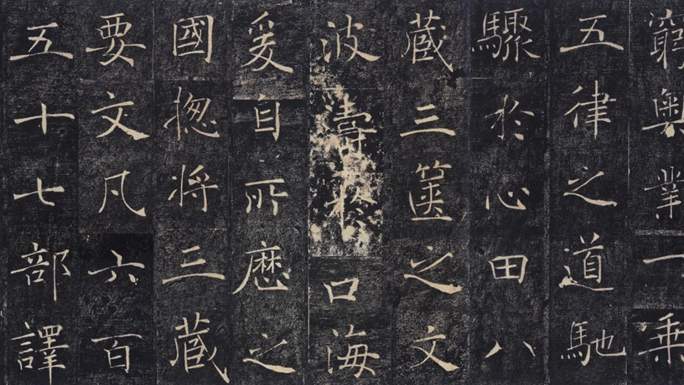 窮奥業一乘
五律之道馳
驟於心田八
藏三篋之文
波濤於口海
爰自所歷之
國揔將三藏
要文凡六百
五十七部譯